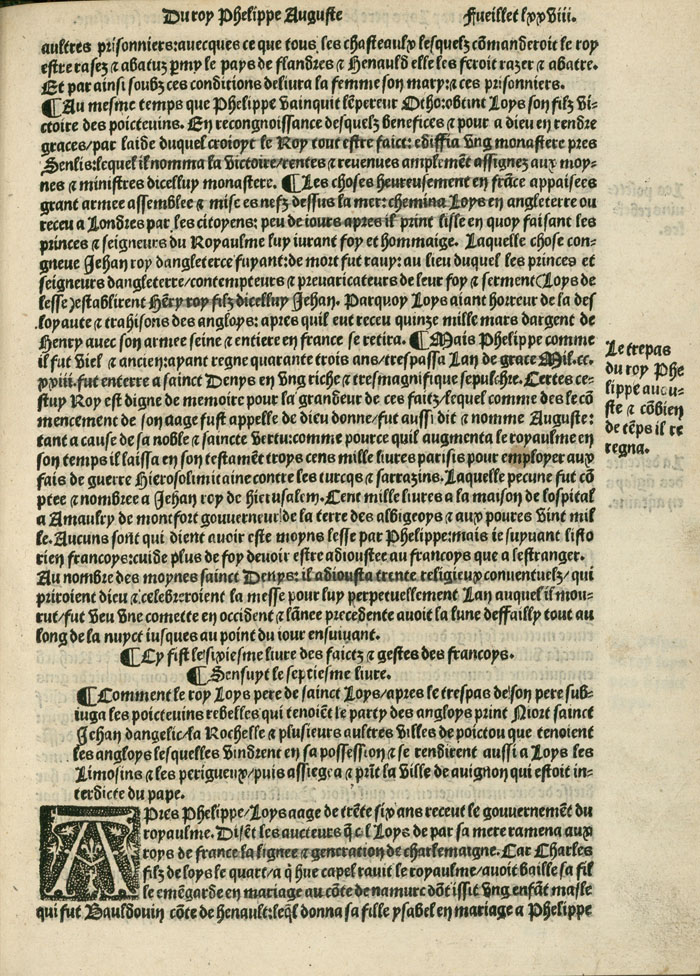 Du roy Phelippe Auguste
Fueillet lxxviii.
aultres prisonniers:auecques ce que tous les chasteaulx lesquelz cõmanderoit le roy
estre rasez ⁊ abatuz ꝑmy le pays de flandres ⁊ Henauld elle les feroit razer ⁊ abatre.
Et par ainsi soubz ces conditions deliura la femme son mary:⁊ ces prisonniers.
¶Au mesme temps que Phelippe vainquit lẽpereur Otho:obtint Loys son filz vi-
ctoire des poicteuins. En recongnoissance desquelz benefices ⁊ pour a dieu en rendre
graces/par laide duquel croioyt le Roy tout estre faict: ediffia vng monastere pres
Senlis:lequel il nomma la victoire/rentes ⁊ reuenues amplemẽt assignez aux moy-
nes ⁊ ministres dicelluy monastere. ¶Les choses heureusement en frãce appaisees
grant armee assemblee ⁊ mise es nefz dessus la mer: chemina Loys en angleterre ou
receu a Londres par les citoyens: peu de iours apres il print lisle en quoy faisant les
princes ⁊ seigneurs du Royaulme luy iurant foy et hommaige. Laquelle chose con-
gneue Jehan roy dangleterce fuyant: de mort fut rauy: au lieu duquel les princes et
seigneurs dangleterre/contempteurs ⁊ preuaricateurs de leur foy ⁊ serment (Loys de
lesse) establirent Hẽry roy filz dicelluy Jehan. Parquoy Loys aiant horreur de la des
loyaute ⁊ trahisons des angloys: apres quil eut receu quinze mille mars dargent de
Henry auec son armee seine ⁊ entiere en france se retira. ¶Mais Phelippe comme
il fut viel ⁊ ancien:ayant regne quarante trois ans/trespassa Lan de grace Mil.cc.
xxiii.fut enterre a sainct Denys en vng riche ⁊ tresmagnifique sepulchre. Certes ce-
stuy Roy est digne de memoire pour la grandeur de ces faitz/lequel comme des le cõ
mencement de son aage fust appelle de dieu donne/fut aussi dit ⁊ nomme Auguste:
tant a cause de sa noble ⁊ saincte vertu:comme pource quil augmenta le royaulme en
son temps il laissa en son testamẽt troys cens mille liures parisis pour employer aux
fais de guerre Hierosolimitaine contre les turcqs ⁊ sarrazins. Laquelle pecune fut cõ
ptee ⁊ nombree a Jehan roy de hierusalem. Cent mille liures a la maison de lospital
a Amaulry de montfort gouuerneur de la terre des albigeoys ⁊ aux poures vint mil
le. Aucuns sont qui dient auoir este moyns lesse par Phelippe:mais ie suyuant listo
rien francoys:cuide plus de foy deuoir estre adioustee au francoys que a lestranger.
Au nombre des moynes sainct Denys: il adiousta trente religieux conuentuelz/ qui
priroient dieu ⁊ celebreroient la messe pour luy perpetuellement Lan auquel il mou-
rut/fut veu vne comette en occident ⁊ lãnee precedente auoit la lune deffailly tout au
long de la nuyct iusques au point du iour ensuiuant.
¶Cy fist le sixiesme liure des faictz ⁊ gestes des francoys.
¶Sensuyt le septiesme liure.
¶Comment le roy Loys pere de sainct Loys/apres le trespas de son pere sub-
iuga les poicteuins rebelles qui tenoiẽt le party des angloys print Niort sainct
Jehan dangelic/la Rochelle ⁊ plusieurs aultres villes de poictou que tenoient
les angloys lesquelles vindrent en sa possession ⁊ se rendirent aussi a Loys les
Limosins ⁊ les perigueux/puis assiegea ⁊ prĩt la ville de auignon qui estoit in-
terdicte du pape.
APres Phelippe/Loys aage de trẽte six ans receut le gouuernemẽt du
royaulme. Disẽt les aucteurs q̃ Loys de par sa mere ramena aux
roys de france la lignee ⁊ generation de charlemaigne. Car Charles
filz de loys le quart/a q̃ hue capel rauit le royaulme/auoit baille sa fil
le emẽgarde en mariage au cõte de namurc dõt issit vng enfãt masle
qui fut Bauldouin cõte de henault:leq̃l donna sa fille ysabel en mariage a Phelippe
Le trepas
du roy Phe
lippe augu-
ste ⁊ cõbien
de tẽps il re
regna.